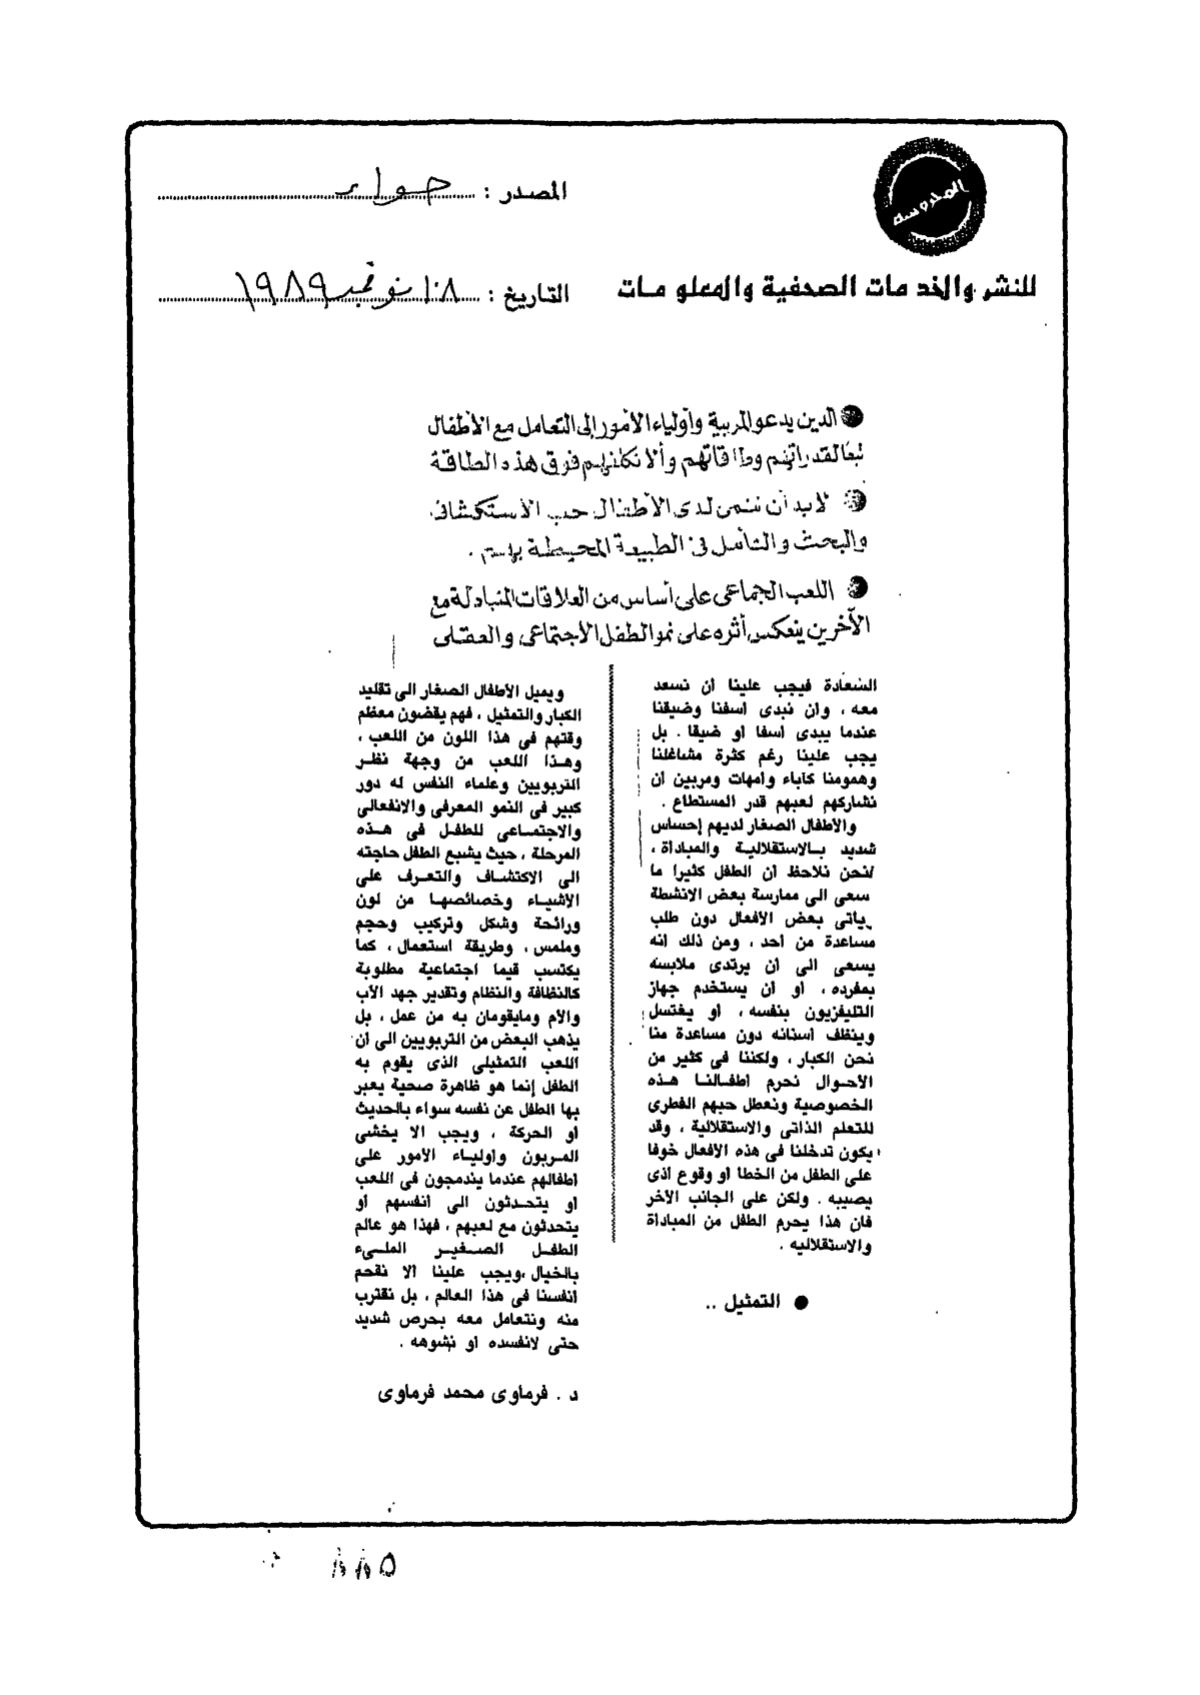 المحروسة
للنشر والخدمات الصحفية والمعلومات
المصدر : حواء
التاريخ : ١٨ نوفمبر ١٩٨٩
● الدين يدعو المربية وأولياء الأمور إلى التعامل مع الأطفال
تبعا لقدراتهم وطاقاتهم وألا نكلفهم فوق هذه الطاقة
● لابد أن ننمى لدى الأطفال حب الأستكشاف
والبحث والتأمل فى الطبيعة المحيطة بهم .
● اللعب الجماعى على أساس من العلاقات المتبادلة مع
الآخرين ينعكس أثره على نمو الطفل الأجتماعى والعقلى
السعادة فيجب علينا ان نسعد
معه ، وان نبدى اسفنا وضيقنا
عندما يبدى اسفا او ضيقا . بل
يجب علينا رغم كثرة مشاغلنا
وهمومنا كاباء وامهات ومربين ان
نشاركهم لعبهم قدر المستطاع .
والاطفال الصغار لديهم إحساس
شديد بالاستقلالية والمباداة ،
فنحن نلاحظ ان الطفل كثيرا ما
سعى الى ممارسة بعض الانشطة
ياتى بعض الافعال دون طلب
مساعدة من احد ، ومن ذلك انه
يسعى الى ان يرتدى ملابسه
بمفرده ، او ان يستخدم جهاز
التليفزيون بنفسه ، او يغتسل
وينظف اسنانه دون مساعدة منا
نحن الكبار ، ولكننا فى كثير من
الاحوال نحرم اطفالنا هذه
الخصوصية ونعطل حبهم الفطرى
للتعلم الذاتى والاستقلالية ، وقد
يكون تدخلنا فى هذه الافعال خوفا
على الطفل من الخطا او وقوع اذى
يصيبه . ولكن على الجانب الاخر
فان هذا يحرم الطفل من المباداة
والاستقلاليه .
● التمثيل ..
ويميل الاطفال الصغار الى تقليد
الكبار والتمثيل ، فهم يقضون معظم
وقتهم فى هذا اللون من اللعب ،
وهذا اللعب من وجهة نظر
التربويين وعلماء النفس له دور
كبير فى النمو المعرفى والانفعالى
والاجتماعى للطفل فى هذه
المرحلة ، حيث يشبع الطفل حاجته
الى الاكتشاف والتعرف على
الاشياء وخصائصها من لون
ورائحة وشكل وتركيب وحجم
وملمس ، وطريقة استعمال ، كما
يكتسب قيما اجتماعية مطلوبة
كالنظافة والنظام وتقدير جهد الاب
والام ومايقومان به من عمل ، بل
يذهب البعض من التربويين الى ان
اللعب التمثيلى الذى يقوم به
الطفل إنما هو ظاهرة صحية يعبر
بها الطفل عن نفسه سواء بالحديث
او الحركة ، ويجب الا يخشى
المربون واولياء الامور على
اطفالهم عندما يندمجون فى اللعب
او يتحدثون الى انفسهم او
يتحدثون مع لعبهم ، فهذا هو عالم
الطفل الصغير الملىء
بالخيال ،ويجب علينا الا نقحم
انفسنا فى هذا العالم ، بل نقترب
منه ونتعامل معه بحرص شديد
حتى لانفسده او نشوهه .
د . فرماوى محمد فرماوى